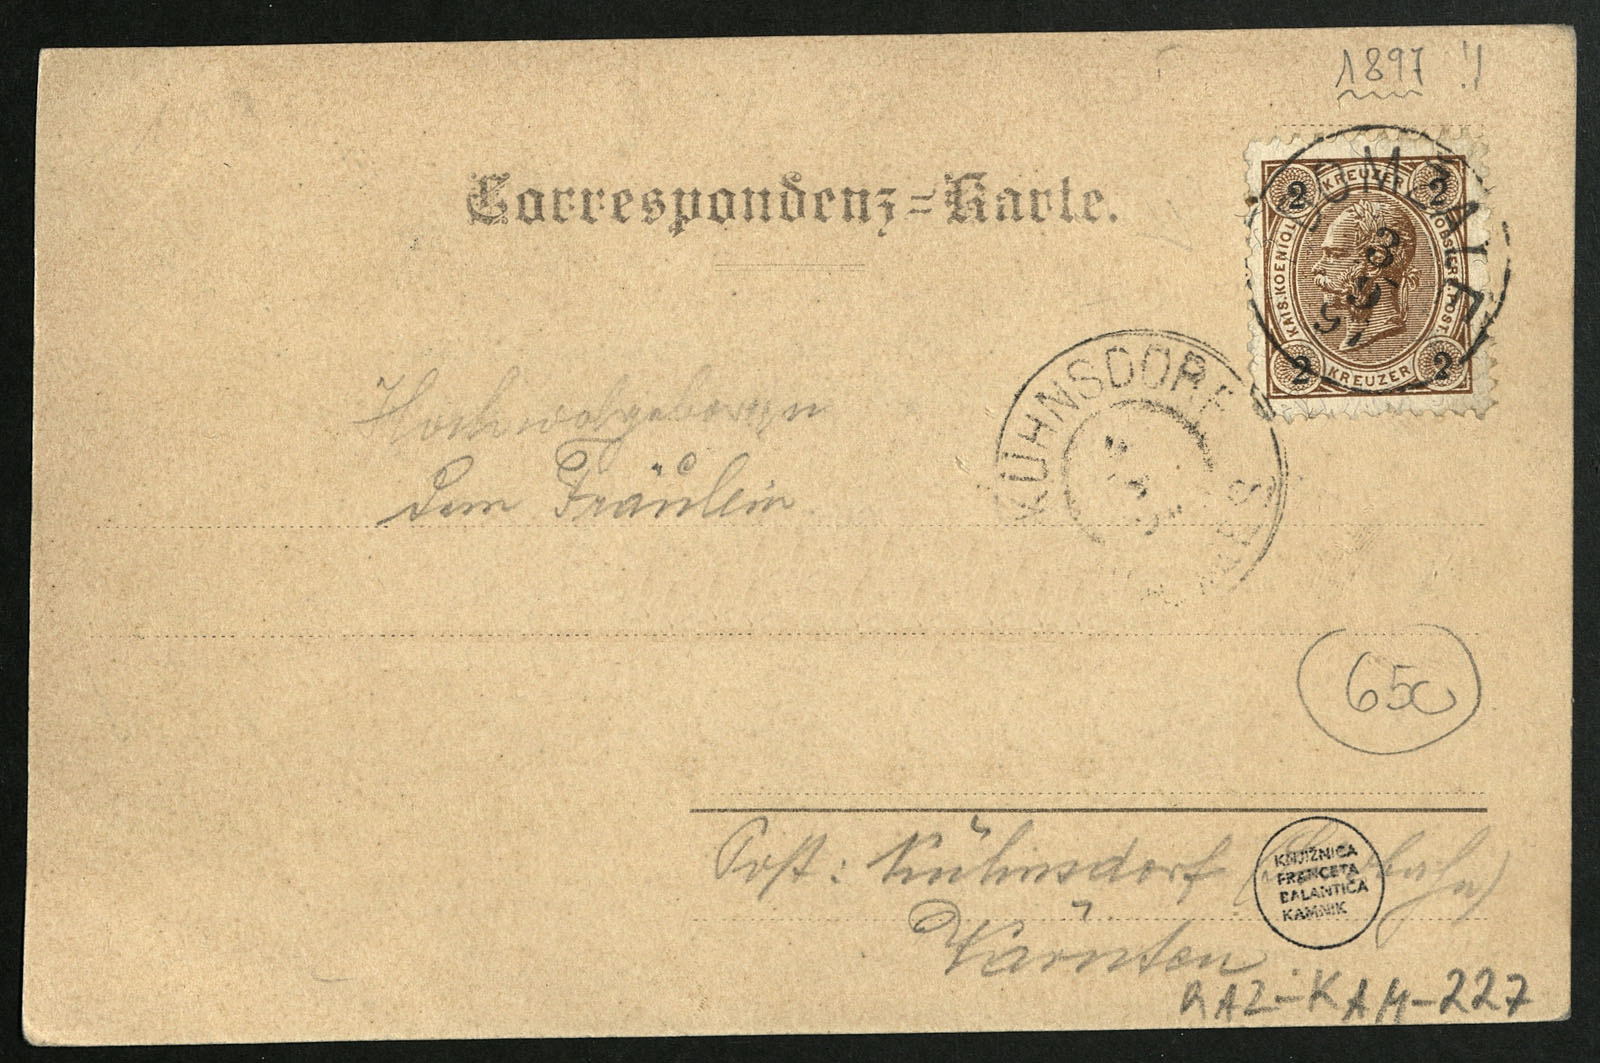 1897 !
Correspondenz-Karte.
KREUZER
2 2
KAIS. KOENIGL. OESTERR. POST.
2 2
KREUZER
DOMŽALE
97
KÜHNSDORF
Hochwolgeboren
dem Fräulein
650
Post: Kühnsdorf
Kärnten
KNJIŽNICA
FRANCETA
BALANTIČA
KAMNIK
RAZ-KAM-227